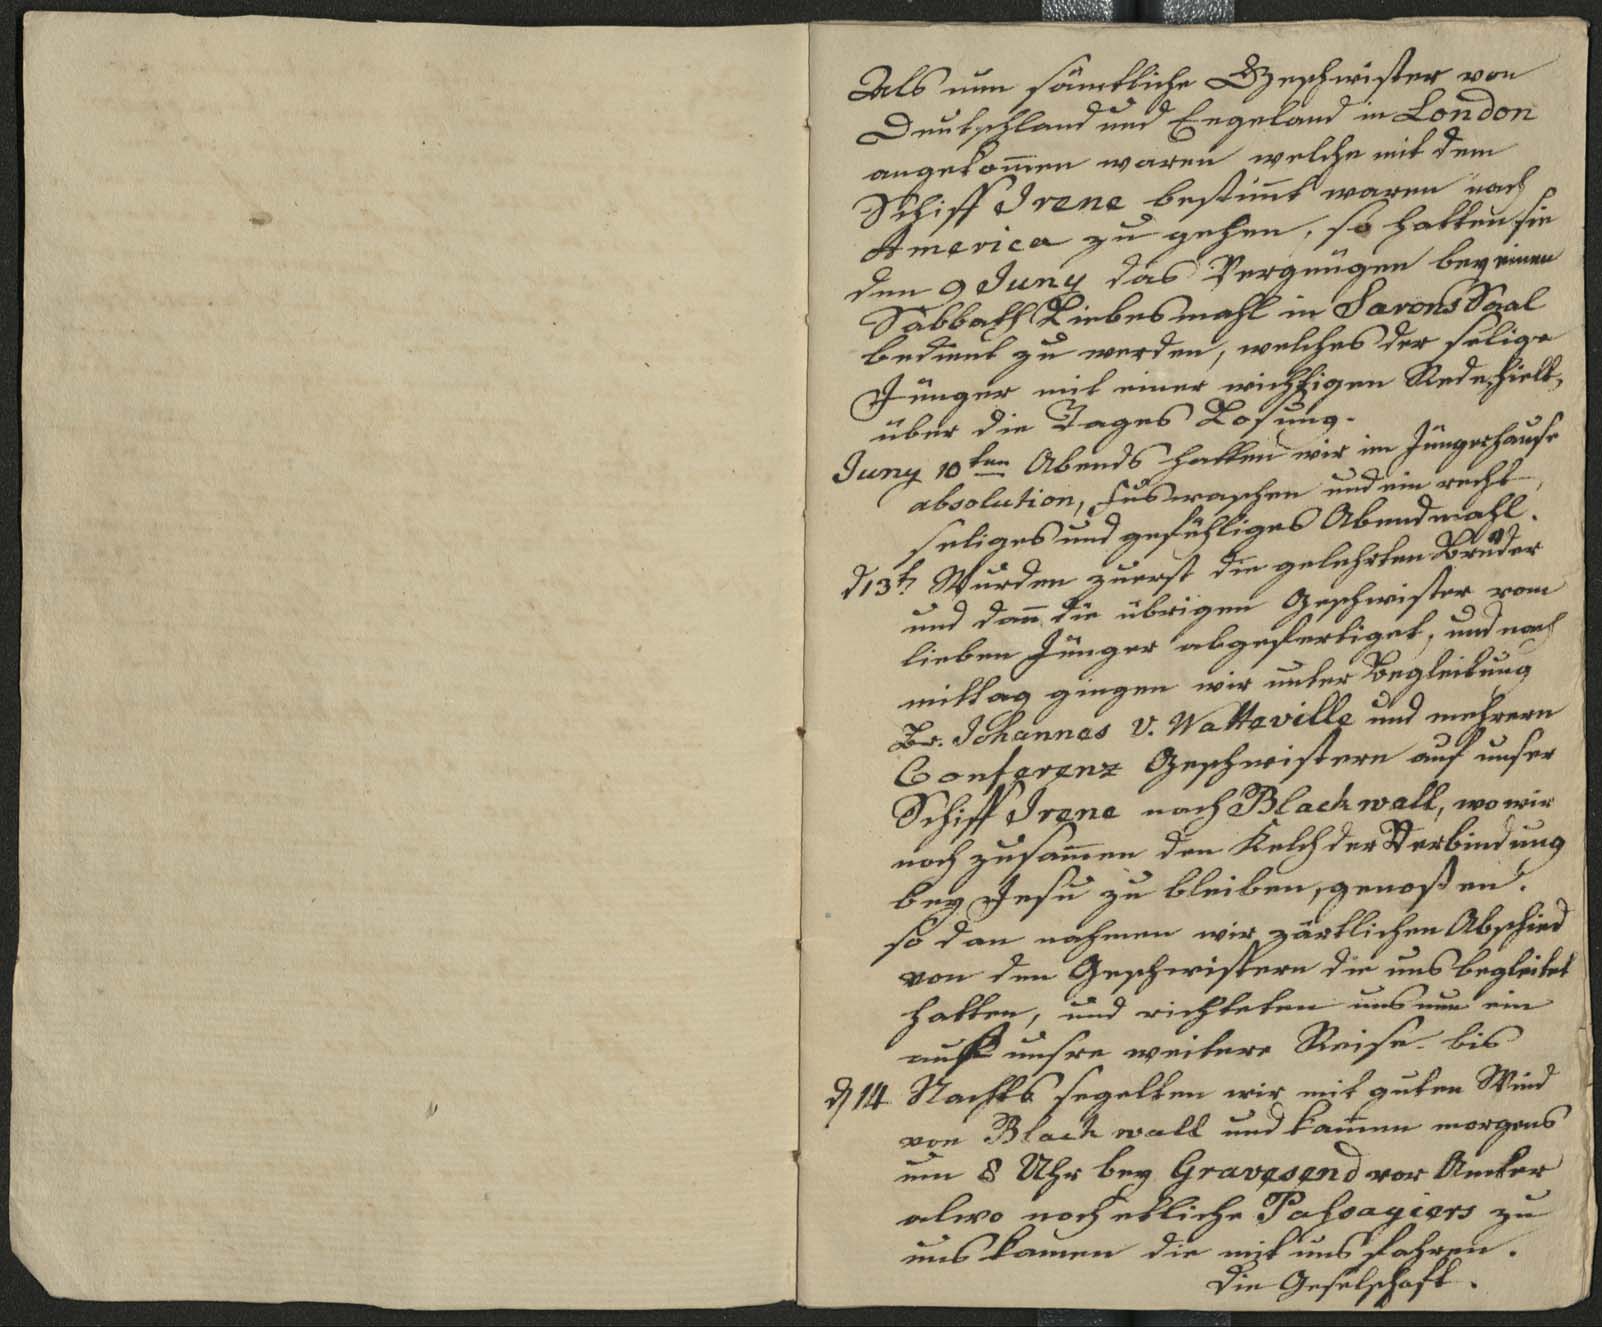 Als nun sämtliche Geschwister von
Deutschland und Engeland in London
angekom̄en waren welche mit dem
Schiff Irene bestim̄t waren nach
America zu gehen, so hatten sie
den 9 Juny das Vergnügen bey einen
Sabbath Liebesmahl in Sarons Saal
bedient zu werden, welches der selige
Jünger mit einer wichtigen Rede hielt,
über die Tages Losung.
Juny 10ten Abends hatten wir im Jüngerhause
absolution, Fuswaschen und ein recht
seliges und gefühliges Abendmahl.
d 13t. Wurden zuerst die gelehrten Brüder
und dan̄ die übrigen Geschwister vom
lieben Jünger abgefertiget, und nach
mittag gingen wir unter Begleitung
Br. Johannes v. Watteville und mehrern
Conferenz Geschwistern auf unser
Schiff Irene nach Blackwall, wo wir
noch zusam̄en den Kelch der Verbindung
bey Jesu zu bleiben, genoßen.
so dan nahmen wir zärtlichen Abschied
von den Geschwistern die uns begleitet
hatten, und richteten uns nun ein
auf unsre weitere Reise. bis
d 14 Nachts segelten wir mit guten Wind
von Blackwall und kamen morgens
um 8 Uhr bey Gravesend vor Anker
alwo noch etliche Passagiers zu
uns kamen die mit uns fahren.
Die Geselschaft.